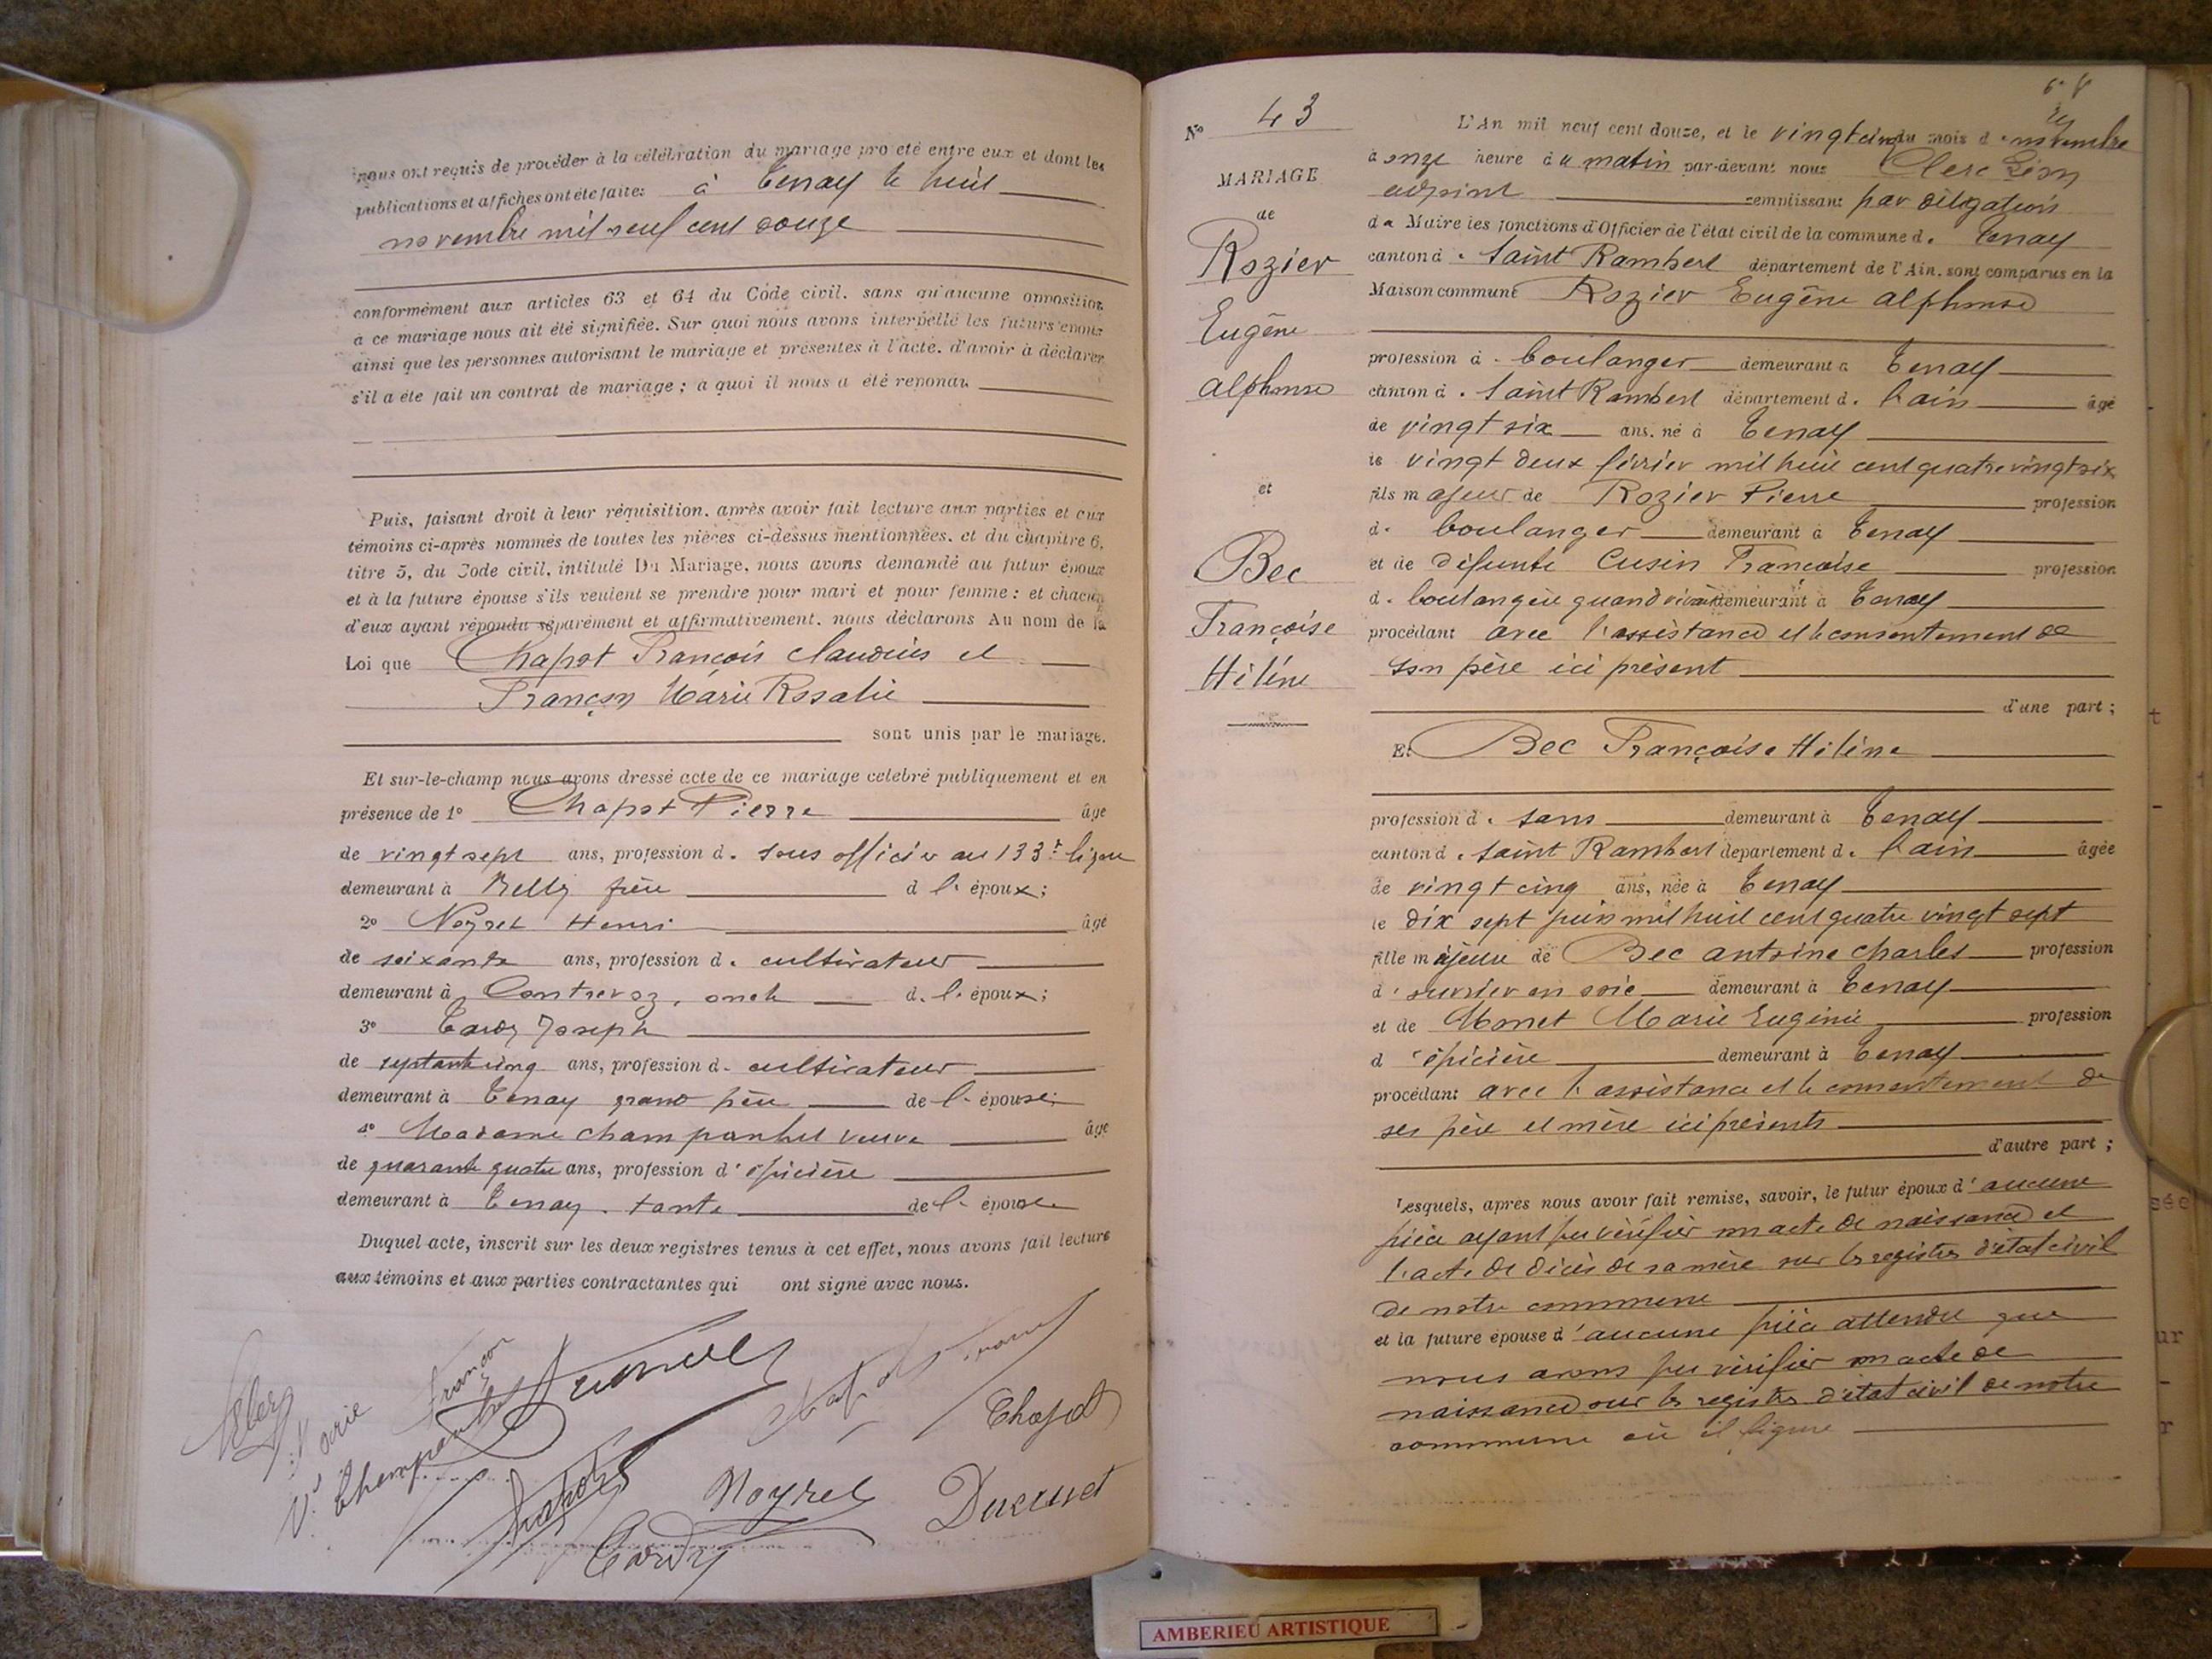 nous ont requis de procéder à la célébration du mariage projeté entre eux et dont les
publications et affiches ont été faites à Tenay le huit
novembre mil neuf cent douze
conformément aux articles 63 et 64 du Code civil, sans qu'aucune opposition
à ce mariage nous ait été signifiée. Sur quoi nous avons interpellé les futurs époux
ainsi que les personnes autorisant le mariage et présentes à l'acte, d'avoir à déclarer
s'il a été fait un contrat de mariage ; à quoi il nous a été répondu
Puis, faisant droit à leur réquisition, après avoir fait lecture aux parties et aux
témoins ci-après nommés de toutes les pièces ci-dessus mentionnées, et du chapitre 6,
titre 5, du Code civil, intitulé Du Mariage, nous avons demandé au futur époux
et à la future épouse s'ils veulent se prendre pour mari et pour femme : et chacun
d'eux ayant répondu séparément et affirmativement, nous déclarons Au nom de la
Loi que Chapot François Claudius et
Françon Marie Rosalie
sont unis par le mariage.
Et sur-le-champ nous avons dressé acte de ce mariage célébré publiquement et en
présence de 1° Chapot Pierre âgé
de vingt sept ans, profession d. sous officier au 133e ligne
demeurant à Belley frère d l. époux ;
2° Neyret Henri âgé
de soixante ans, profession d. cultivateur
demeurant à Contrevoz, oncle d. l. époux ;
3° Tardy Joseph
de septante cinq ans, profession d. cultivateur
demeurant à Tenay grand père de l. épouse ;
4° Madame Champanhet veuve âgé
de quarante quatre ans, profession d' épicière
demeurant à Tenay. tante de l. épouse
Duquel acte, inscrit sur les deux registres tenus à cet effet, nous avons fait lecture
aux témoins et aux parties contractantes qui ont signé avec nous.
Marie Françon
Vve Champanhet
Chapot
Neyret
Ducruet
Tardy
N° 43
MARIAGE
de
Rozier
Eugène
Alphonse
et
Bec
Françoise
Hélène
L'An mil neuf cent douze, et le vingt cinq du mois d. novembre
à onze heure du matin par-devant nous Clerc Léon
adjoint remplissant par délégation
du Maire les fonctions d'Officier de l'état civil de la commune d. Tenay
canton d. Saint Rambert département de l'Ain, sont comparus en la
Maison commune Rozier Eugène Alphonse
profession d. boulanger demeurant à Tenay
canton d. Saint Rambert département d. l'ain âgé
de vingt six ans, né à Tenay
le vingt deux février mil huit cent quatre vingt six
fils majeur de Rozier Pierre profession
d. boulanger demeurant à Tenay
et de défunte Cusin Françoise profession
d. boulangère quand vivait demeurant à Tenay
procédant avec l'assistance et le consentement de
son père ici présent
d'une part ;
Et Bec Françoise Hélène
profession d. sans demeurant à Tenay
canton d. Saint Rambert département d. l'ain âgée
de vingt cinq ans, née à Tenay
le dix sept juin mil huit cent quatre vingt sept
fille majeure de Bec Antoine Charles profession
d' ouvrier en soie demeurant à Tenay
et de Monet Marie Eugénie profession
d' épicière demeurant à Tenay
procédant avec l'assistance et le consentement de
ses père et mère ici présents
d'autre part ;
Lesquels, après nous avoir fait remise, savoir, le futur époux d' aucune
pièce ayant pu vérifier son acte de naissance et
l'acte de décès de sa mère sur les registres d'état civil
de notre commune
et la future épouse d' aucune pièce attendu que
nous avons pu vérifier son acte de
naissance sur les registres d'état civil de notre
commune où il figure
AMBERIEU ARTISTIQUE